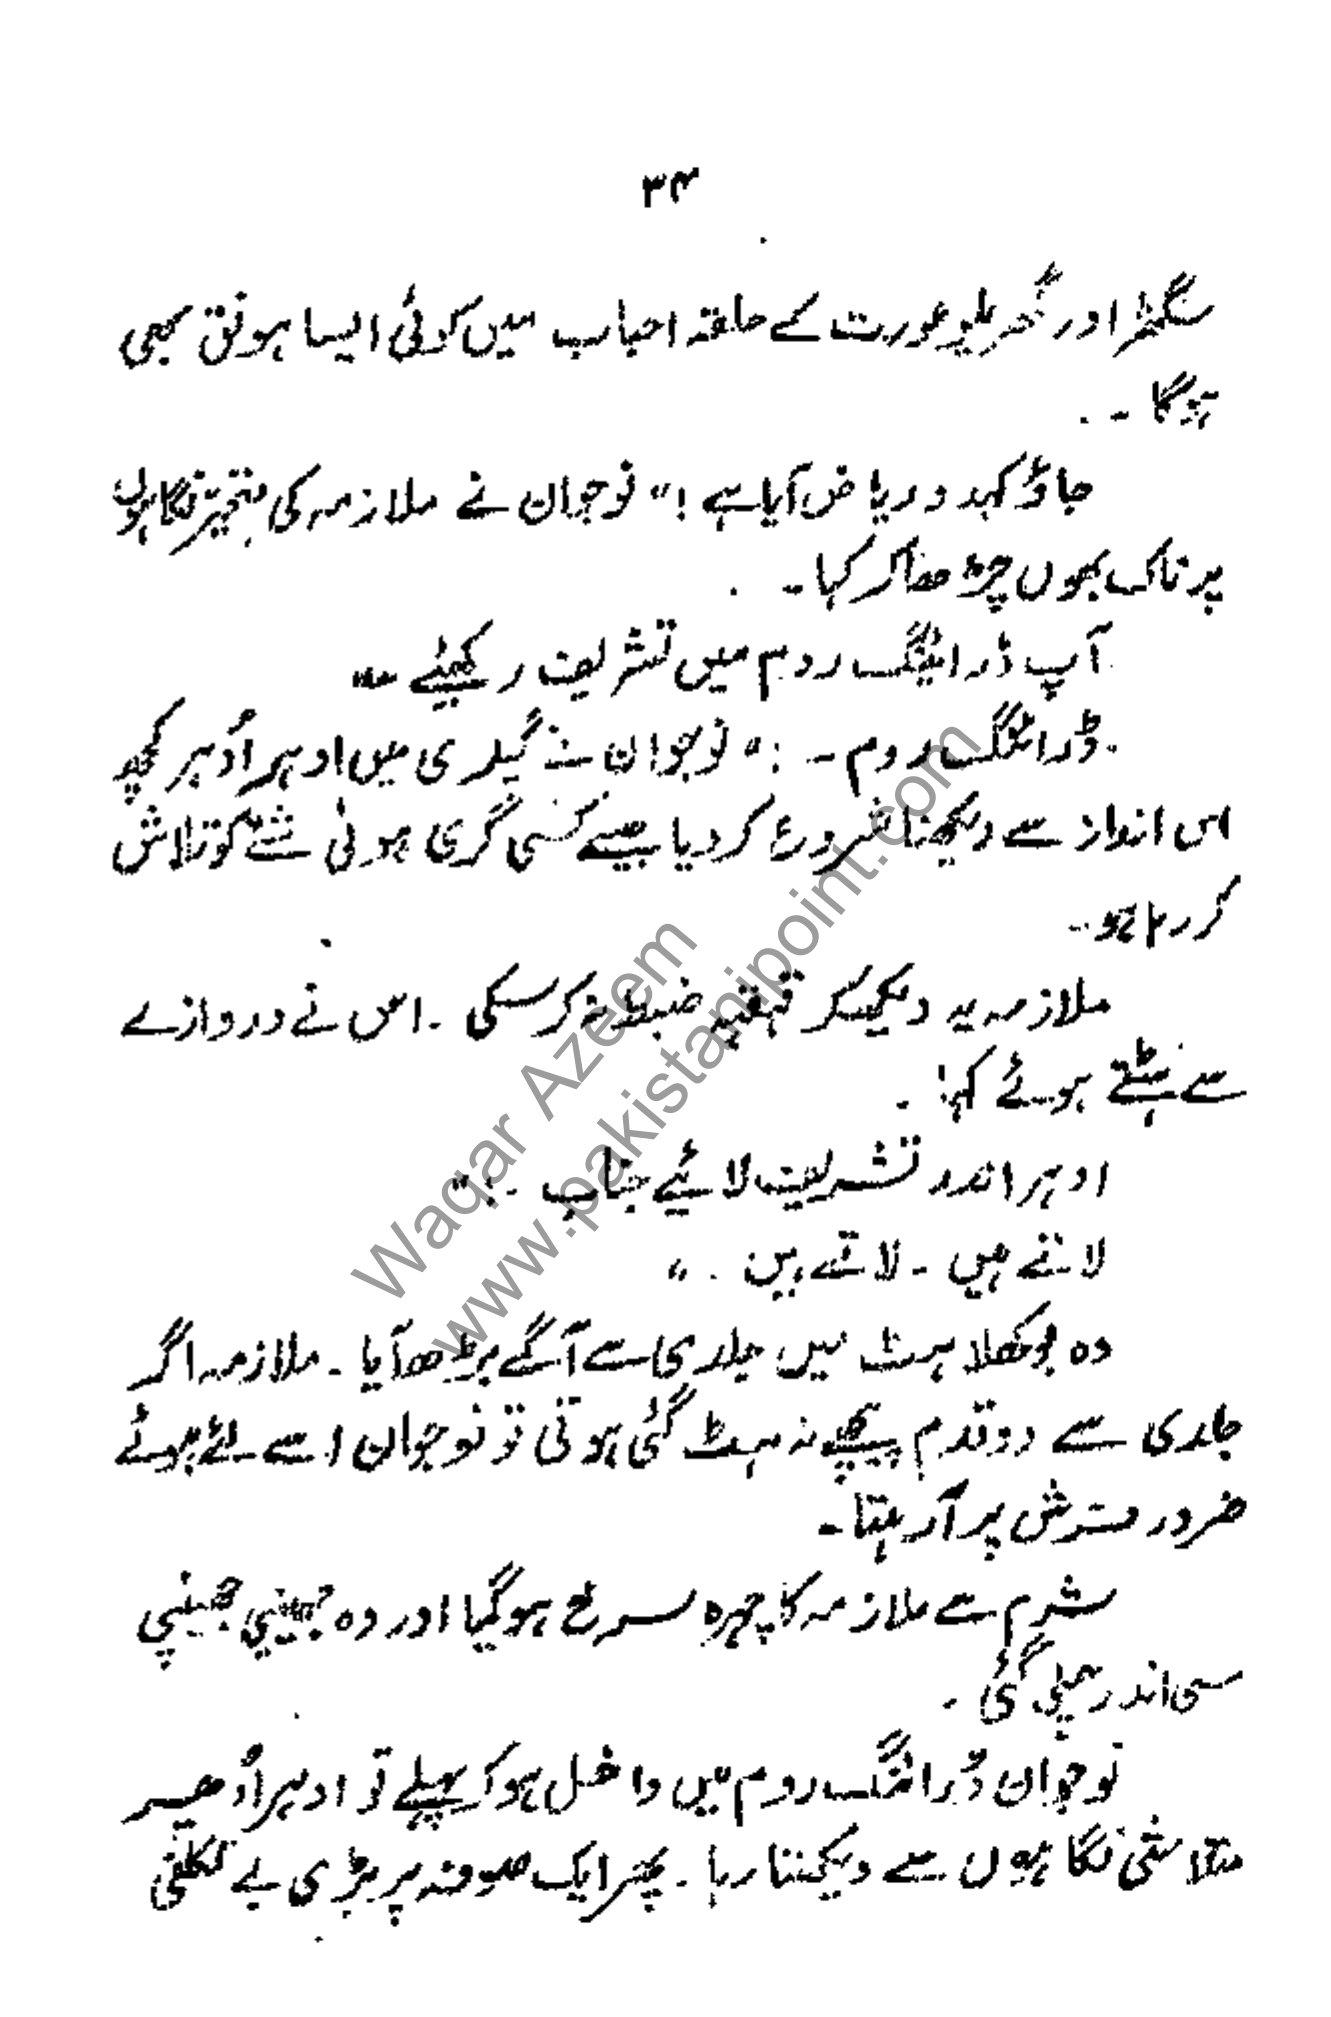 ۳۴
سگھڑ اور گھریلو عورت کے حلقہ احباب میں کوئی ایسا ہونق بھی
ہوگا ۔
جاؤ کہدو ریاض آیا ہے !" نوجوان نے ملازمہ کی متحیر نگاہوں
پر ناک بھوں چڑھا کر کہا ۔
آپ ڈرائینگ روم میں تشریف رکھیئے ۔"
ڈرائنگ روم ۔ !" نوجوان نے گیلری میں ادہر اُدہر کچھ
اس انداز سے دیکھنا شروع کر دیا جیسے کسی گری ہوئی شئے کو تلاش
کر رہا ہو ۔
ملازمہ یہ دیکھکر قہقہہ ضبط نہ کر سکی ۔ اس نے دروازے
سے ہٹتے ہوئے کہا ۔
ادہر اندر تشریف لائیے جناب ۔!"
لاتے ہیں ۔ لاتے ہیں ۔"
وہ بوکھلاہٹ میں جلدی سے آگے بڑھ آیا ۔ ملازمہ اگر
جلدی سے دو قدم پیچھے نہ ہٹ گئی ہوتی تو نوجوان اسے لئے ہوئے
ضرور فرش پر آ رہتا ۔
شرم سے ملازمہ کا چہرہ سرخ ہوگیا اور وہ جھینپی جھینپی
سی اندر چلی گئی ۔
نوجوان ڈرائنگ روم میں داخل ہو کر پہلے تو ادہر اُدھر
متلاشی نگاہوں سے دیکھتا رہا ۔ پھر ایک صوفہ پر بڑی بے تکلفی
Waqar Azeem
www.pakistanipoint.com